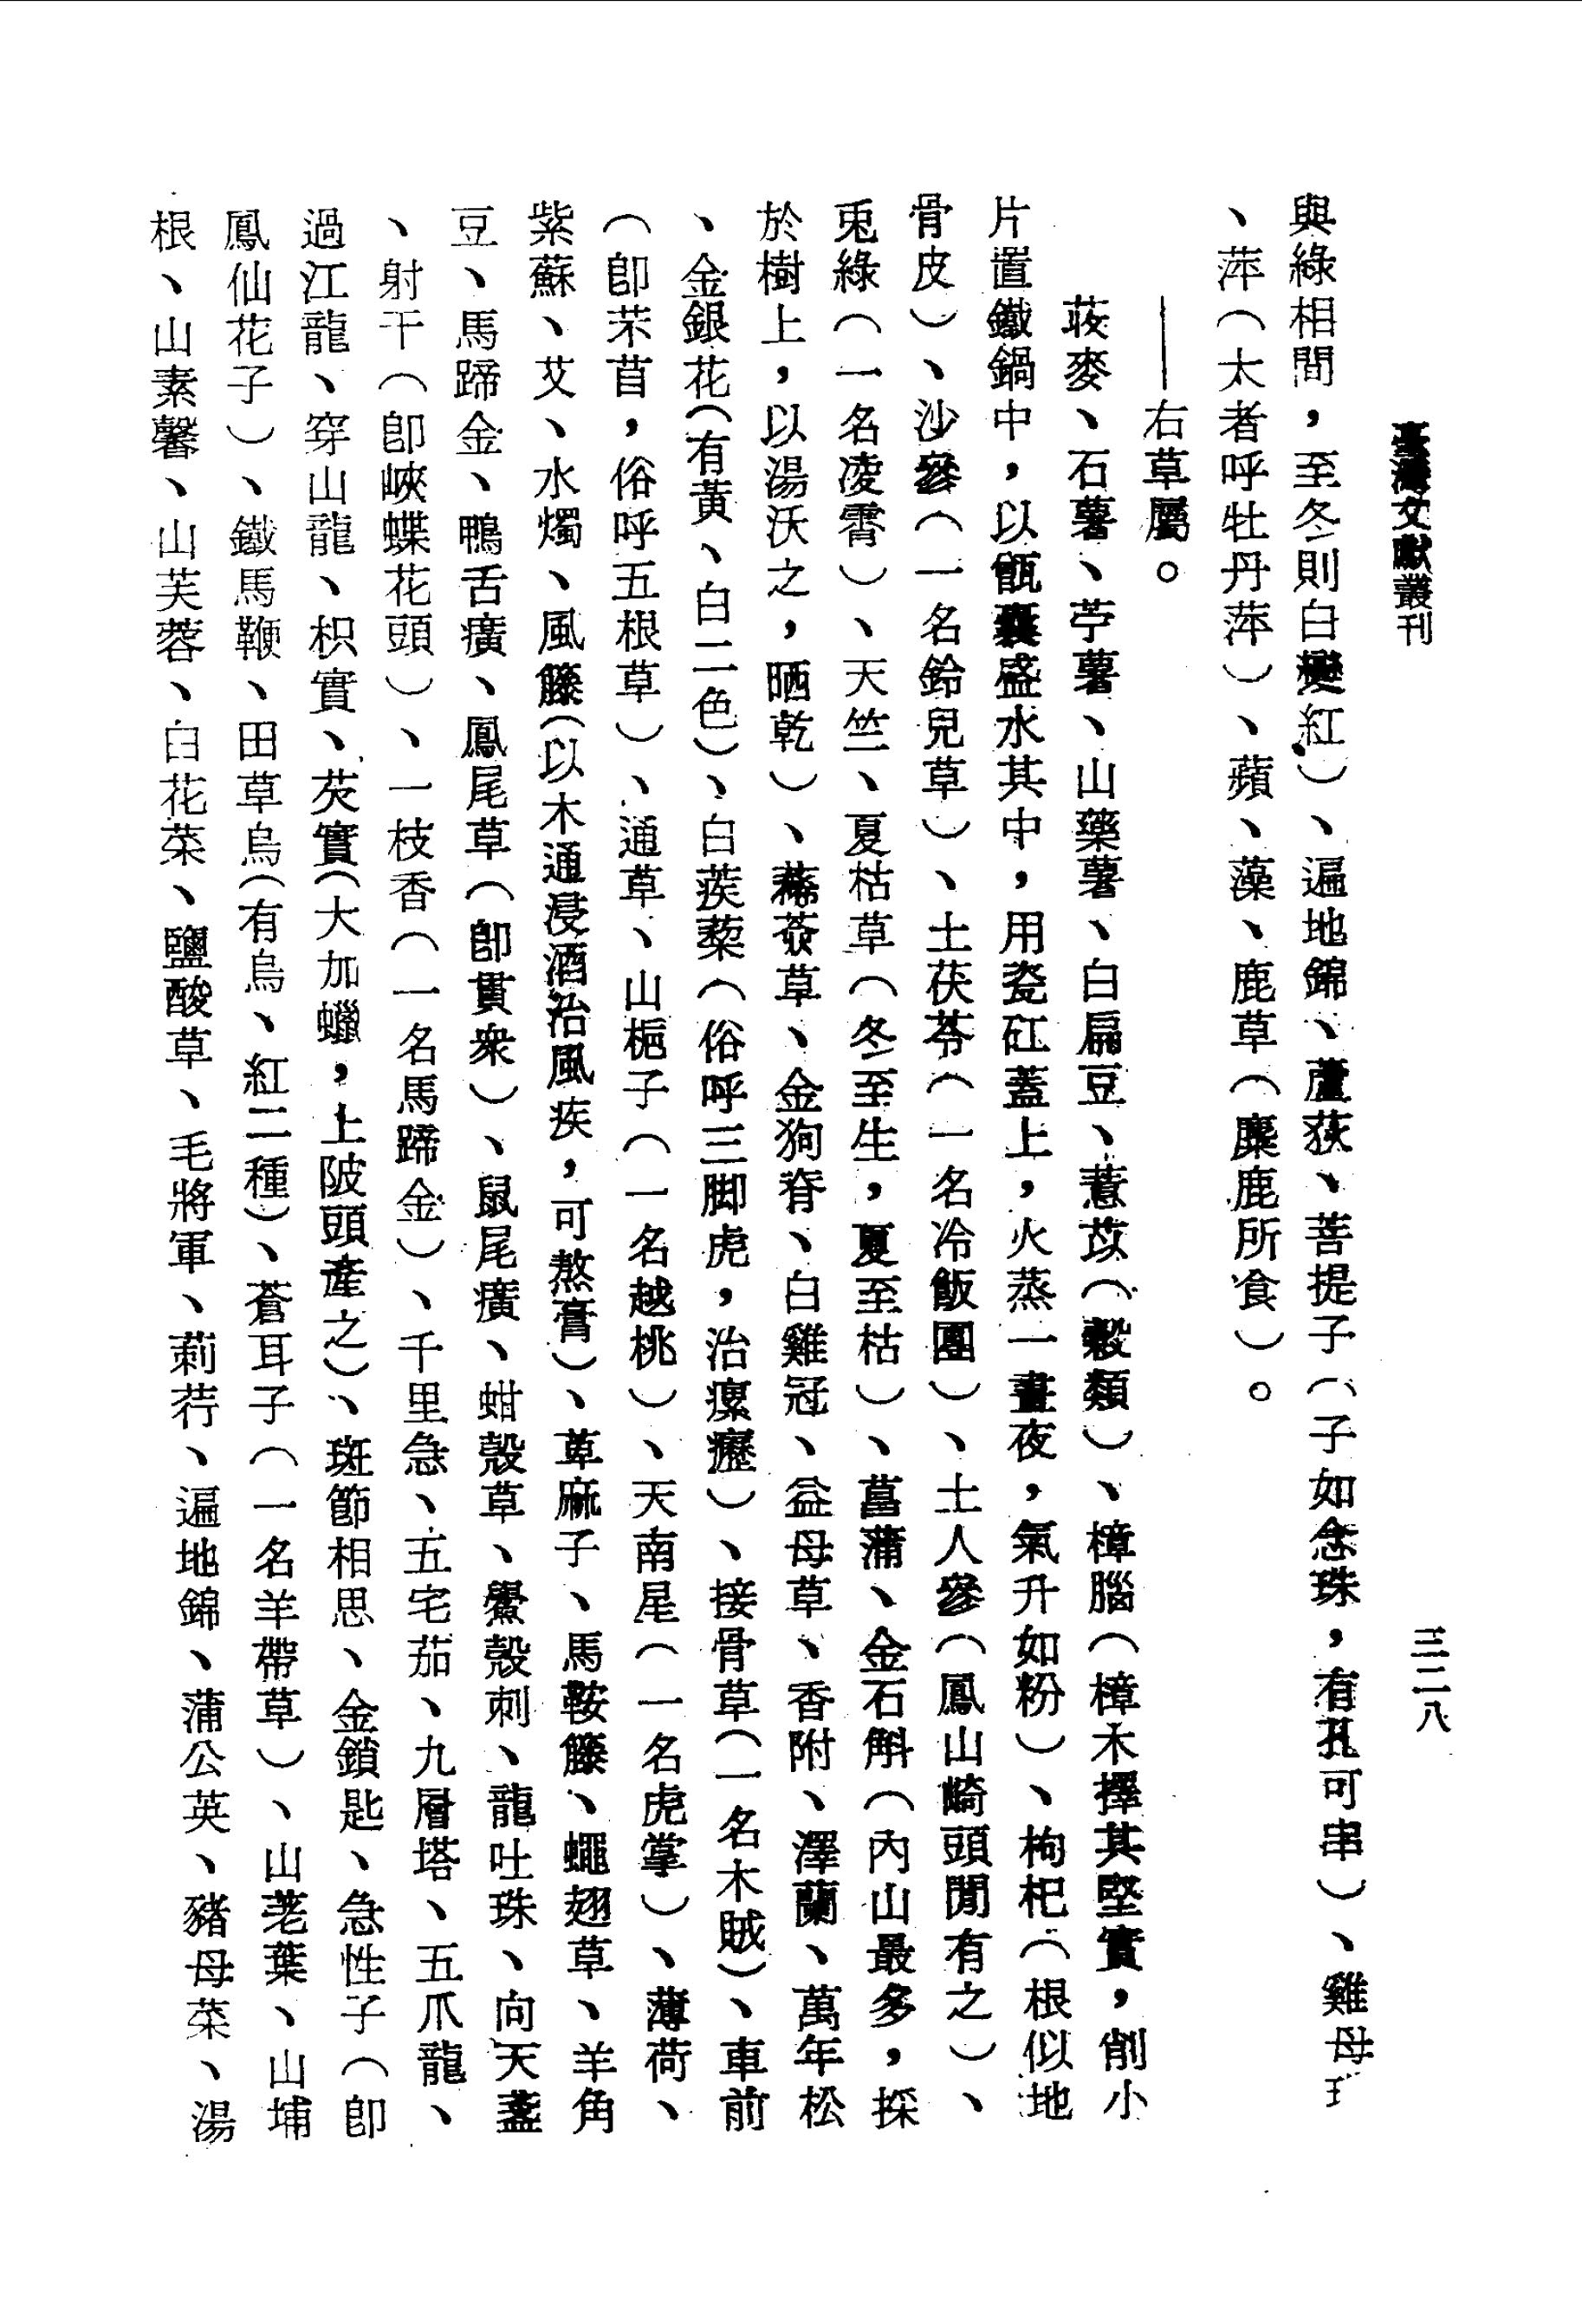 臺灣文獻叢刊
三二八
與綠相間，至冬則白變紅）、遍地錦、蘆荻、菩提子（子如念珠，有孔可串）、雞母
、萍（大者呼牡丹萍）、蘋、藻、鹿草（麋鹿所食）。
——右草屬。
荍麥、石薯、苧薯、山藥薯、白扁豆、薏苡（穀類）、樟腦（樟木擇其堅實，削小
片置鐵鍋中，以甑囊盛水其中，用瓷矼蓋上，火蒸一晝夜，氣升如粉）、枸杞（根似地
骨皮）、沙參（一名鈴兒草）、土茯苓（一名冷飯團）、土人參（鳳山崎頭間有之）、
兎絲（一名凌霄）、天竺、夏枯草（冬至生，夏至枯）、菖蒲、金石斛（內山最多，採
於樹上，以湯沃之，晒乾）、豨薟草、金狗脊、白雞冠、益母草、香附、澤蘭、萬年松
、金銀花（有黃、白二色）、白蒺藜（俗呼三脚虎，治瘰癧）、接骨草（一名木賊）、車前
（卽芣苢，俗呼五根草）、通草、山梔子（一名越桃）、天南星（一名虎掌）、薄荷、
紫蘇、艾、水燭、風籐（以木通浸酒治風疾，可熬膏）、萆麻子、馬鞍籐、蠅翅草、羊角
豆、馬蹄金、鴨舌癀、鳳尾草（卽貫衆）、鼠尾癀、蚶殼草、鱟殼刺、龍吐珠、向天盞
、射干（卽峽蝶花頭）、一枝香（一名馬蹄金）、千里急、五宅茄、九層塔、五爪龍、
過江龍、穿山龍、枳實、芡實（大加蠟，上陂頭產之）、斑節相思、金鎖匙、急性子（卽
鳳仙花子）、鐵馬鞭、田草烏（有烏、紅二種）、蒼耳子（一名羊帶草）、山荖葉、山埔
根、山素馨、山芙蓉、白花菜、鹽酸草、毛將軍、莿荇、遍地錦、蒲公英、豬母菜、湯